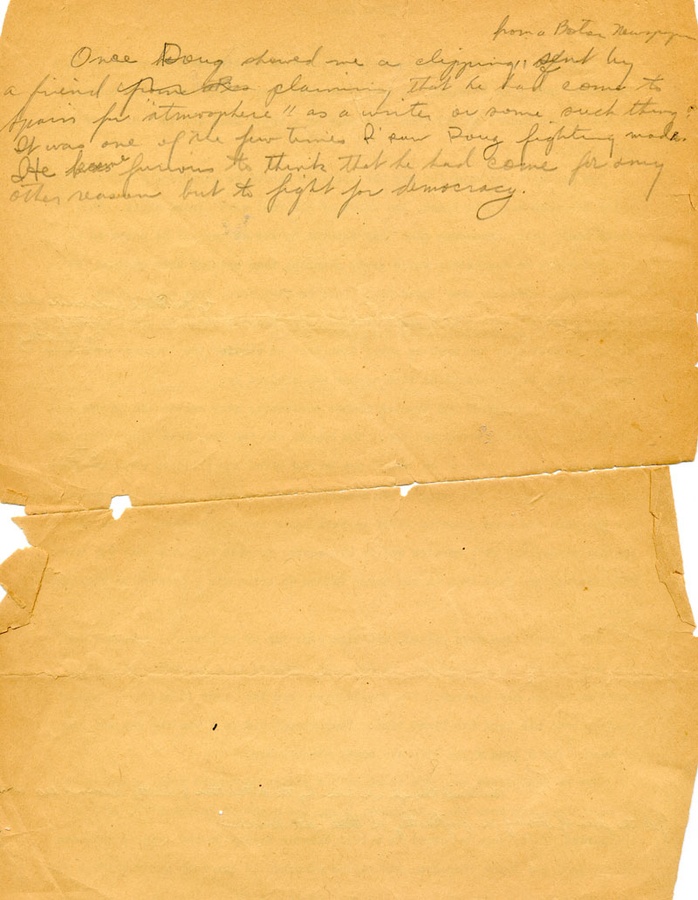 from a Boston Newspaper
Once Doug showed me a clipping, sent by
a friend plaining that he had come to
Spain for "atmosphere" as a writer or some such thing.
It was one of the few times I saw Doug fighting made.
He furious to think that he had come for any
other reason but to fight for democracy.